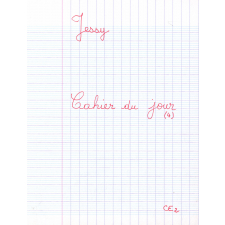 Jessy
Cahier du jour
(4)
CE2